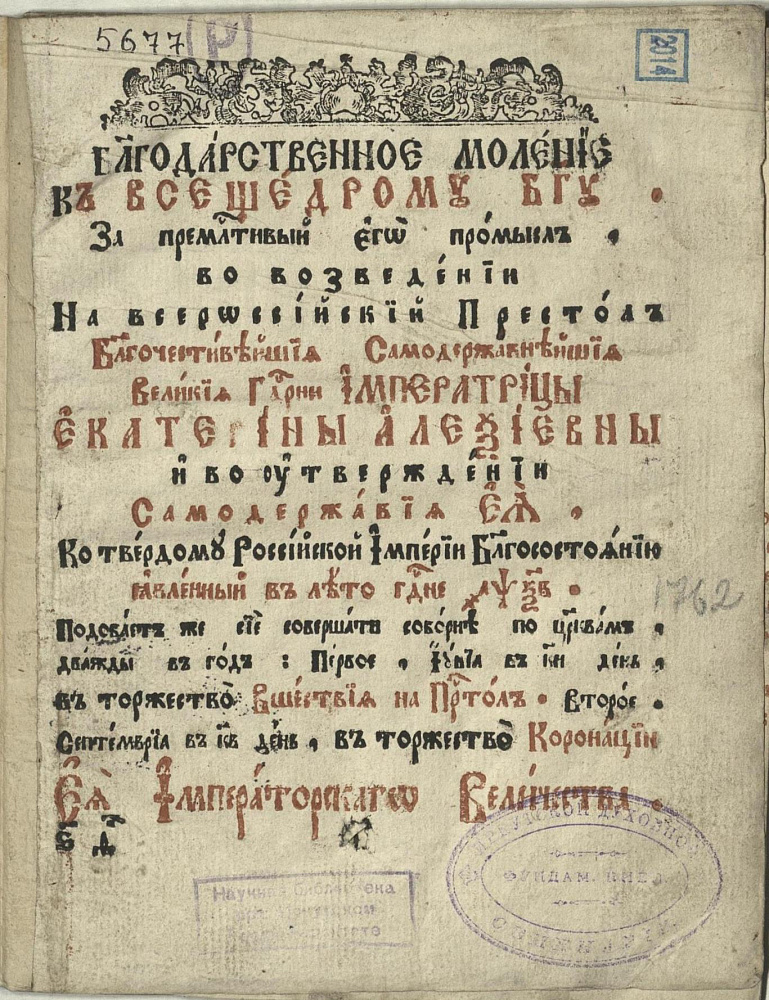 5677 Р
2014
Бл҃года́рственное моле́нїе
Къ всеще́дрому бг҃у .
За премⷭ҇тивый є҆гѡ̀ про́мыслъ .
во возведе́нїи
На всерѡссі́йскїй Престо́лъ
Бл҃гочести́вѣйшїя Самодержа́внѣйшїя
Вели́кїя Гдⷭ҇рни І҆мператрі́цы
Є҆катері́ны А҆леѯі́евны
и҆ во ᲂу҆твержде́нїи
Самодержа́вїѧ Є҆Ѧ̀ .
Ко тве́рдому Россі́йской І҆мпе́рїи Бл҃госостоѧ́нїю
ꙗ҆вле́нный въ лѣ́то гдⷭ҇не ҂аѱѯ҃в .
Подоба́етъ же сїѐ соверша́ти собо́рнѣ по цр҃квамъ .
два́жды въ го́дъ : Пе́рвое , І҆у́нїа въ к҃и де́нь ,
въ торжество̀ Вше́ствїѧ на Прⷭ҇то́лъ . Второ́е .
Септе́мврїа въ к҃в де́нь , въ торжество̀ Корона́цїи
Є҆ѧ̀ І҆мпера́торскагѡ Вели́чества .
1762
Научная библиотека